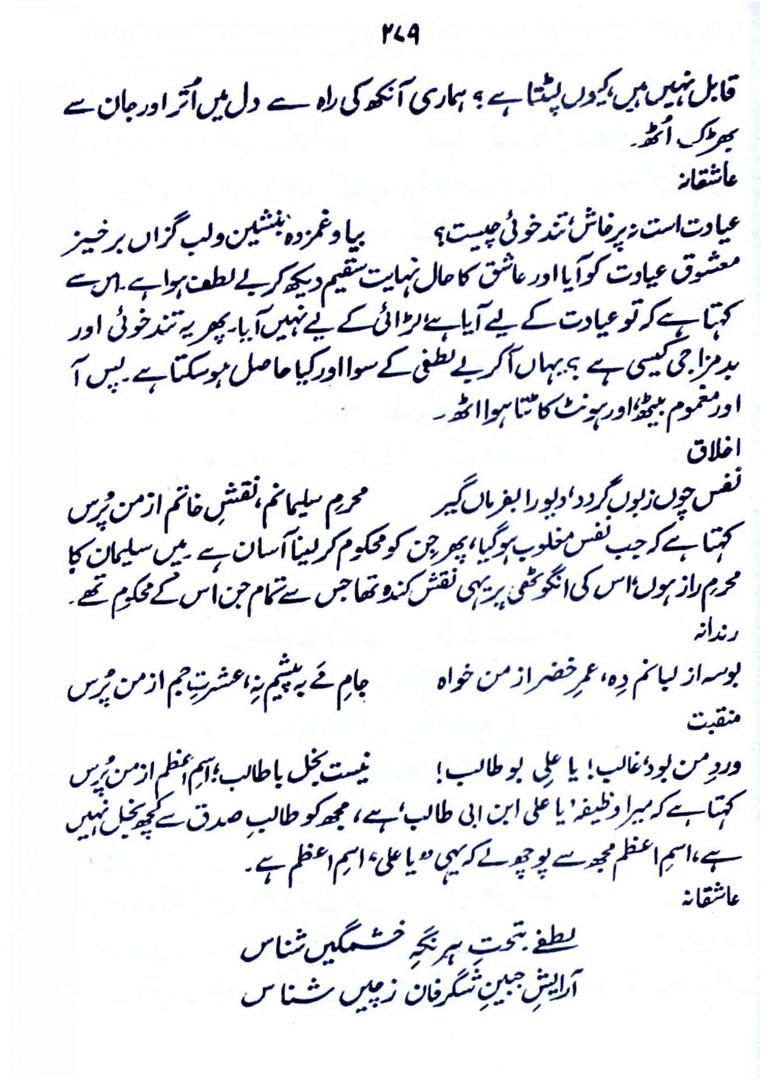 ۲۷۹
قابل نہیں ہیں، کیوں لپٹتا ہے؟ ہماری آنکھ کی راہ سے دل میں اُتر اور جان سے
بھڑک اُٹھ۔
عاشقانہ
عیادت است نہ پرخاش، تُند خوئی چیست؟ بیا و غمزدہ بنشین و لب گزاں برخیز
معشوق عیادت کو آیا اور عاشق کا حال نہایت سقیم دیکھ کر بے لطف ہوا ہے۔ اس سے
کہتا ہے کہ تو عیادت کے لیے آیا ہے لڑائی کے لیے نہیں آیا۔ پھر یہ تند خوئی اور
بدمزاجی کیسی ہے؟ یہاں آ کر بے لطفی کے سوا اور کیا حاصل ہو سکتا ہے۔ پس آ
اور مغموم بیٹھ، اور ہونٹ کاٹتا ہوا اٹھ۔
اخلاق
نفس چوں زبوں گردد، دیو را بفرماں گیر محرمِ سلیمانم، نقشِ خاتم از من پُرس
کہتا ہے کہ جب نفس مغلوب ہو گیا، پھر جِن کو محکوم کر لینا آسان ہے۔ میں سلیمان کا
محرمِ راز ہوں، اس کی انگوٹھی پر یہی نقش کندہ تھا جس سے تمام جن اس کے محکوم تھے۔
رندانہ
بوسہ از لبانم دِہ، عمرِ خضر از من خواہ جامِ مَے بہ پیشم نِہ، عشرتِ جم از من پُرس
منقبت
وردِ من بود، غالب! یا علیِ بو طالب! نیست بخل با طالب؛ اسمِ اعظم از من پُرس
کہتا ہے کہ میرا وظیفہ 'یا علی ابن ابی طالب' ہے، مجھ کو طالبِ صدق سے کچھ بخل نہیں
ہے، اسمِ اعظم مجھ سے پوچھ لے کہ یہی "یا علی" اسمِ اعظم ہے۔
عاشقانہ
لطفے بتحتِ ہر نگہِ خشمگیں شناس
آرایشِ جبینِ شگرفاں ز چیں شناس